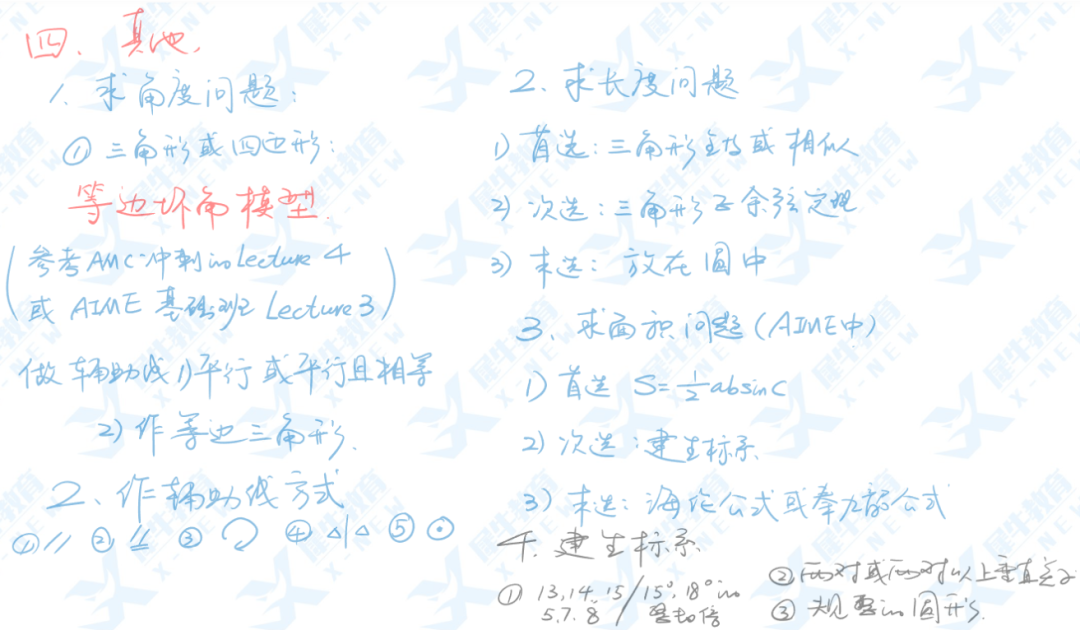 四、其他、
1. 求角度问题:
① 三角形或四边形:
等边坏角模型.
(参考AMC冲刺in Lecture 4
或 AIME 基础班 Lecture 3)
做辅助线 1) 平行或平行且相等
2) 作等边三角形.
2、作辅助线方式
① // ② ③ ④ △|△ ⑤ ⊙
2. 求长度问题
1) 首选: 三角形全等或相似
2) 次选: 三角形正余弦定理
3) 末选: 放在圆中
3、求面积问题(AIME中)
1) 首选 S=½absinC
2) 次选: 建坐标系
3) 末选: 海伦公式或秦九韶公式
4. 建坐标系
① 13, 14, 15 / 15°, 18° in
5. 7. 8 整数倍
② 两对或两对以上垂直
③ 规整in圆形.
犀牛教育
X-NEW